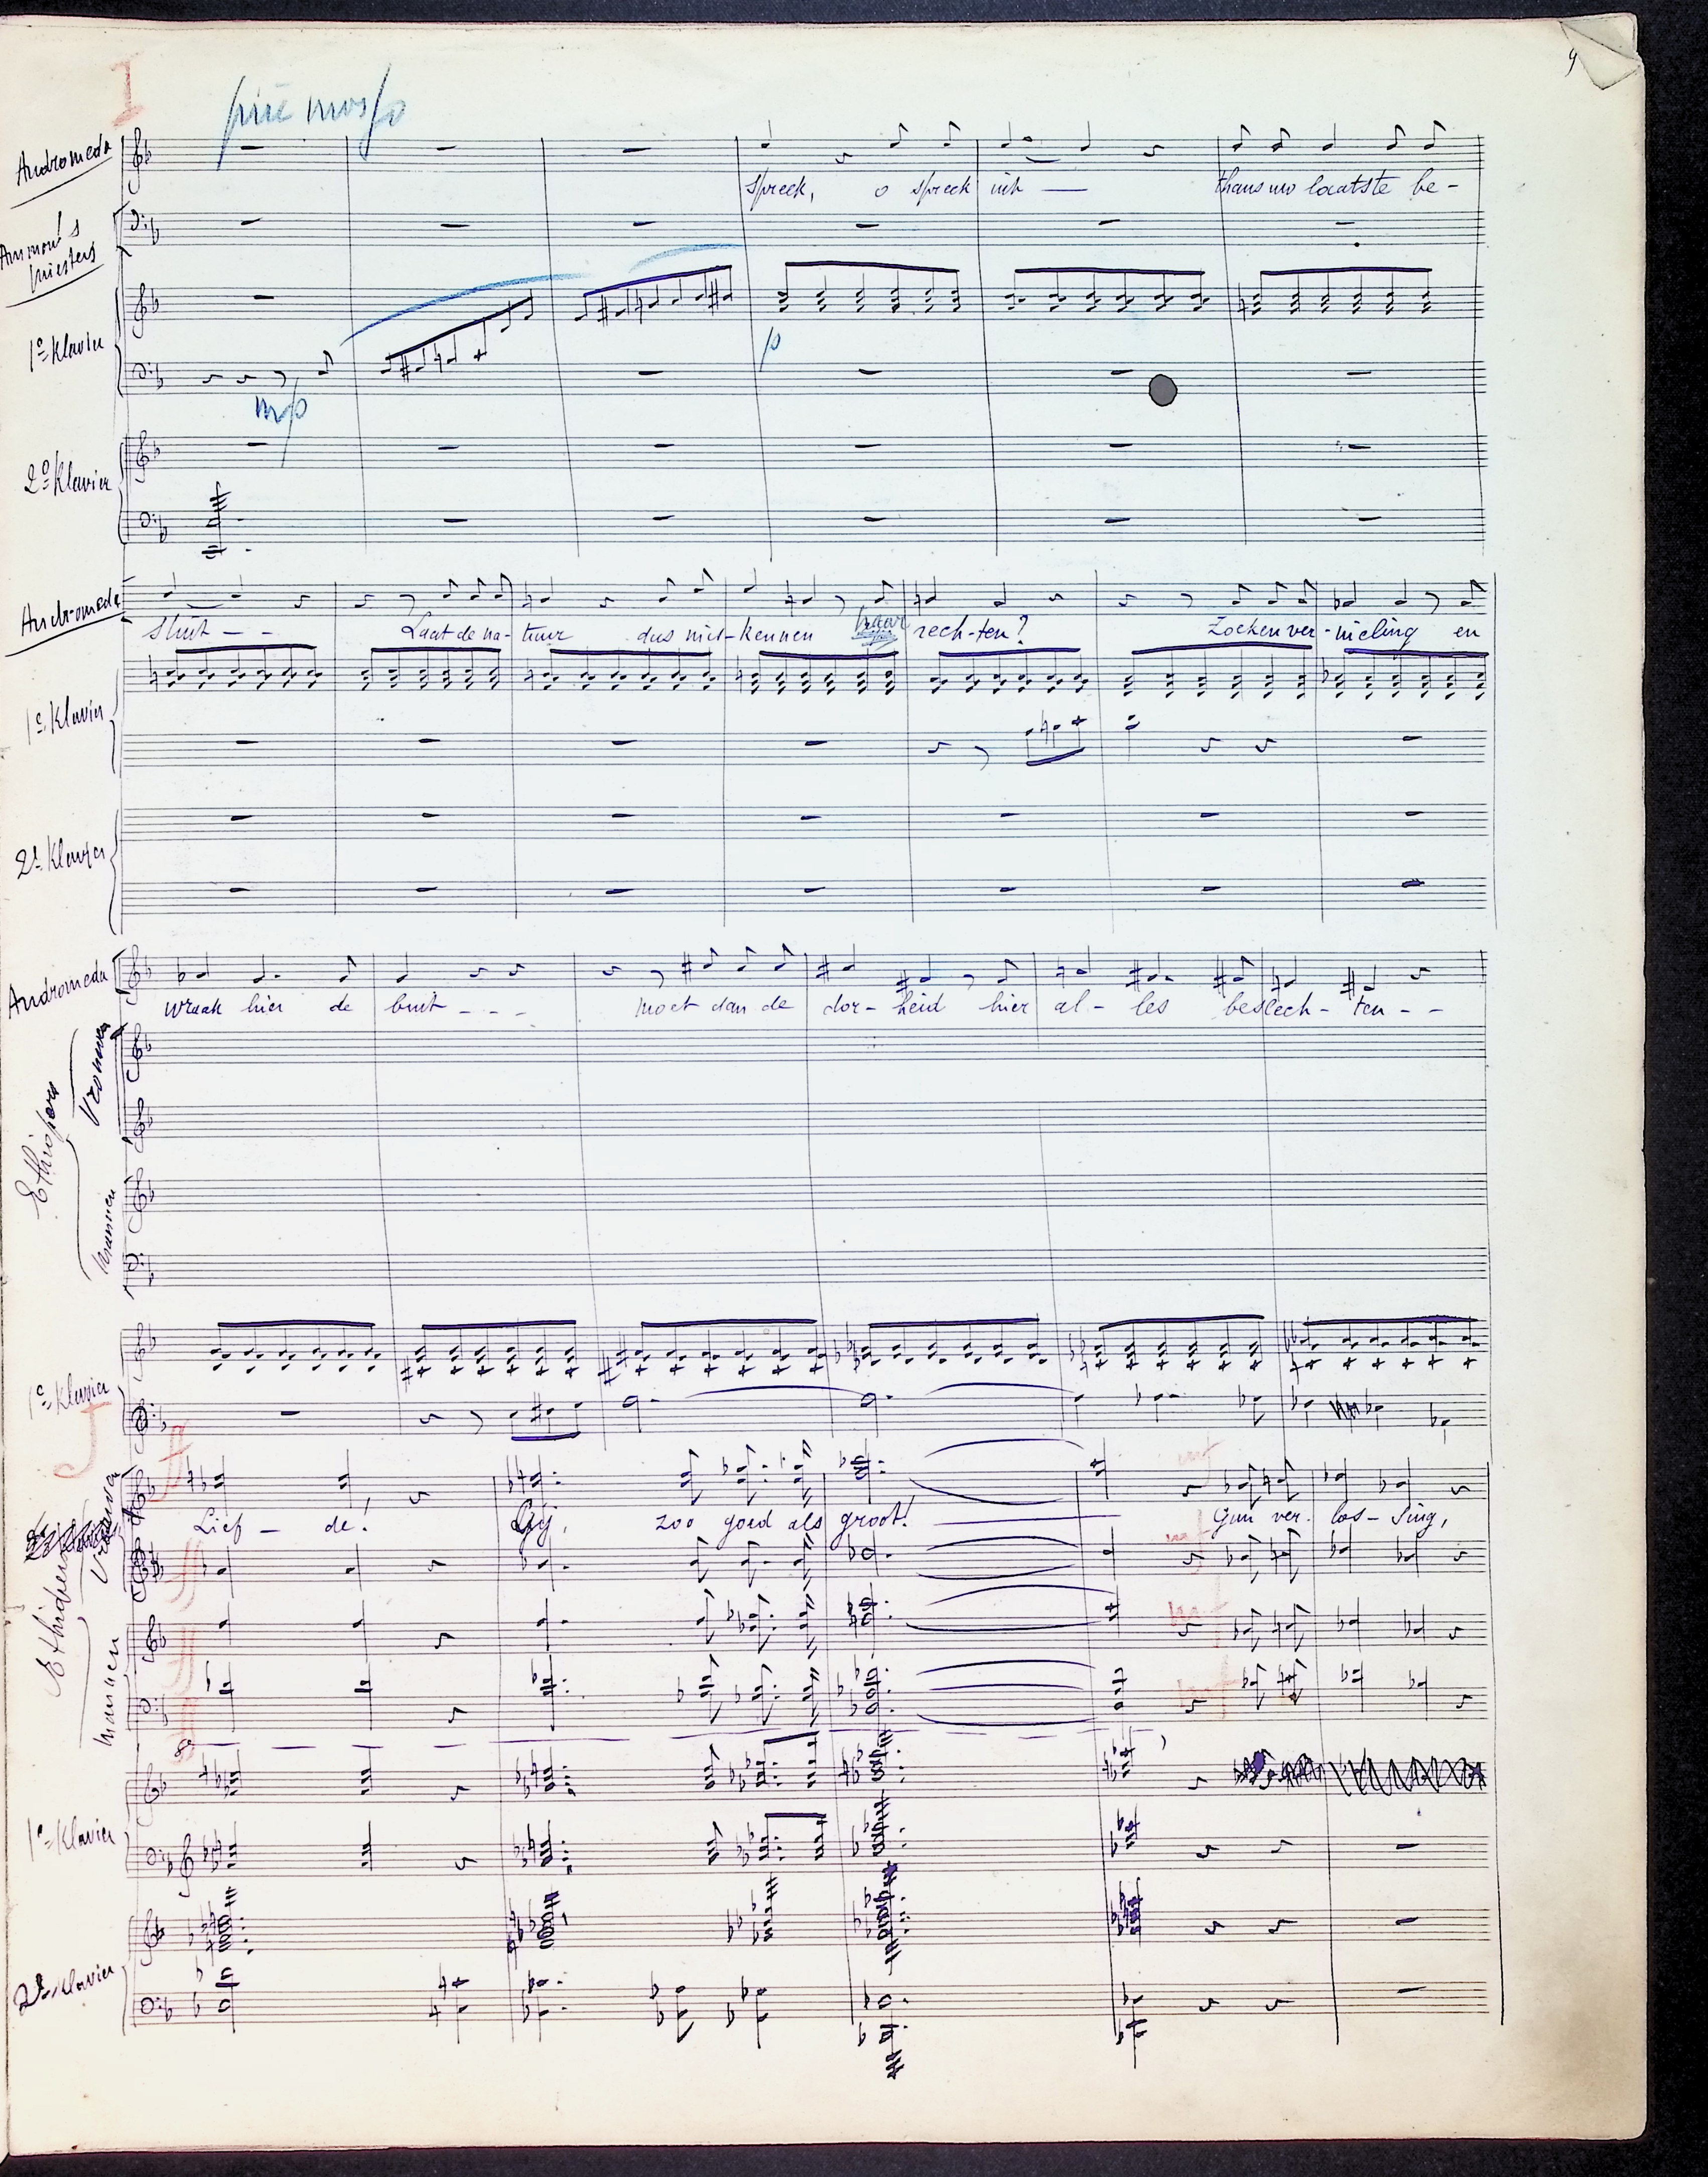 9
I
più mosso
Andromeda
Spreek, o spreek uit — thans uw laatste be-
Ammon's
priesters
1e Klavier
p
mfo
2e Klavier
Andromeda
sluit - - Laat de na- tuur dus niet - kennen haar rech-ten? Zoeken ver - nieling en
1e Klavier
2e Klavier
Andromeda
wraak hier de buit - - - moet dan de dor - heid hier al - les beslech - ten - -
Ethiopers
Vrouwen
Mannen
1e Klavier
J
ff
mf
Lief - de! Gij, zoo goed als groot! Gun ver - los - sing,
Vrouwen
ff
mf
ff
mf
Mannen
ff
mf
8a
1e Klavier
2e Klavier